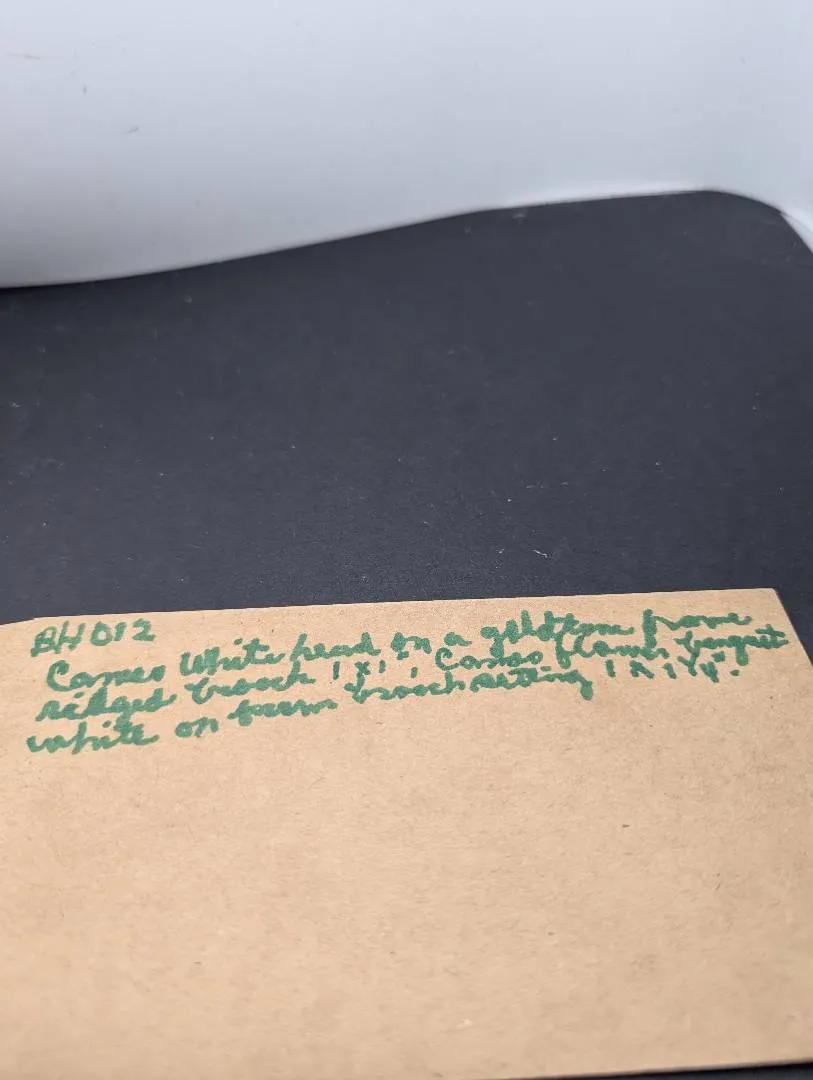 BH 012
Cameo White head on a goldtone frame
ridged brooch 1 x 1", Cameo flower bouquet
white on brooch setting 1 x 1 1/4".